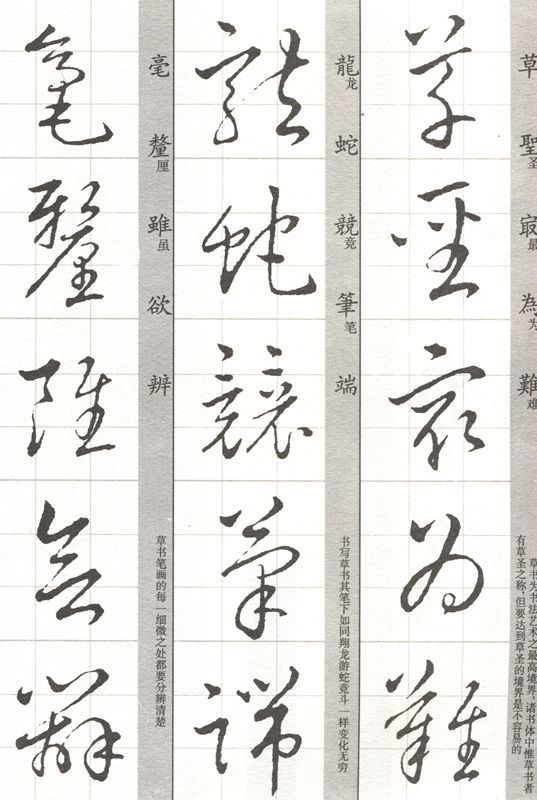 草聖圣㝡最為为難难
草书为书法艺术之最高境界，诸书体中惟草书者
有草圣之称，但要达到草圣的境界是不容易的
草聖㝡為難
龍龙蛇競竞筆笔端
书写草书其笔下如同翔龙游蛇竞斗一样变化无穷
龍蛇競筆端
毫釐厘雖虽欲辨
草书笔画的每一细微之处都要分辨清楚
毫釐雖欲辨